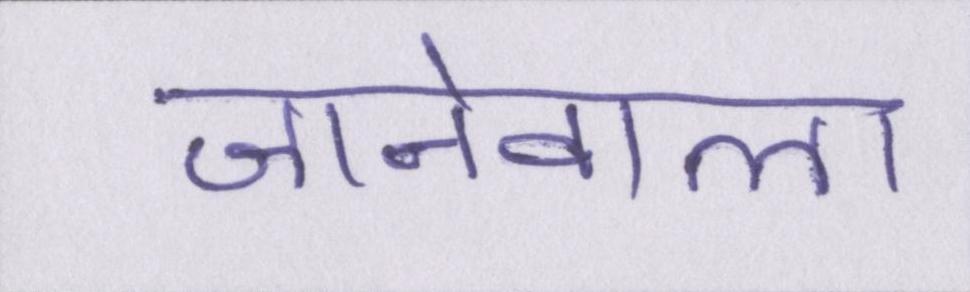 जानेवाला